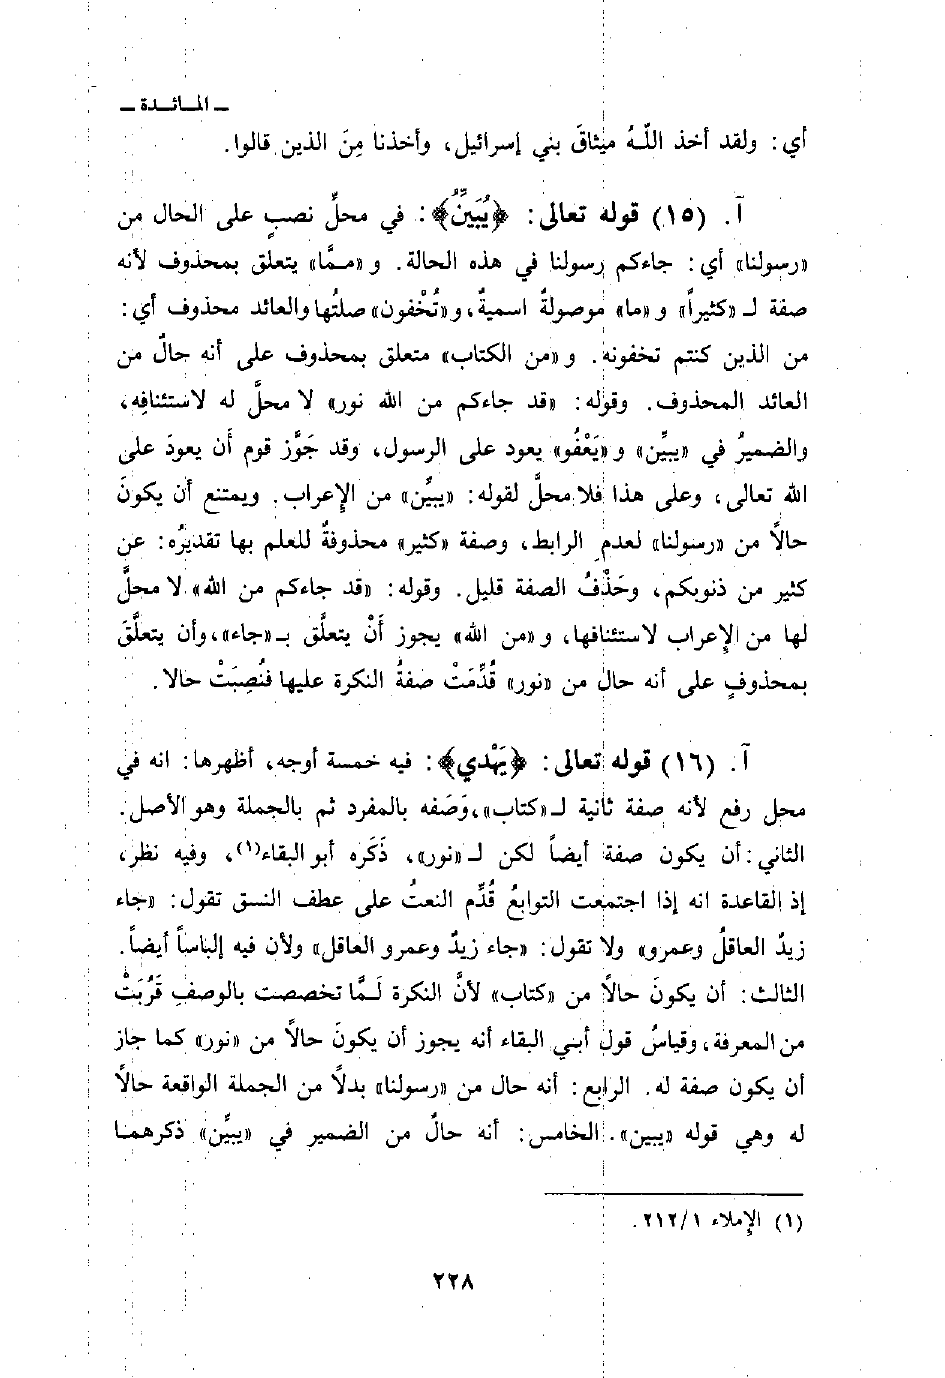 ـ المـائـدة ـ
أي: ولقد أخذ اللّهُ ميثاقَ بني إسرائيل، وأخذنا مِنَ الذين قالوا.
آ. (١٥) قوله تعالى: ﴿يُبَيِّنُ﴾: في محلِّ نصبٍ على الحال من
«رسولنا» أي: جاءكم رسولنا في هذه الحالة. و «مـمَّا» يتعلق بمحذوف لأنه
صفة لـ «كثيراً» و «ما» موصولةٌ اسميةٌ، و «تُخْفون» صلتُها والعائد محذوف أي:
من الذين كنتم تخفونه. و «من الكتاب» متعلق بمحذوف على أنه حالٌ من
العائد المحذوف. وقوله: «قد جاءكم من الله نور» لا محلَّ له لاستئنافِه،
والضميرُ في «يبيِّن» و «يَعْفُو» يعود على الرسول، وقد جَوَّز قوم أَن يعودَ على
الله تعالى، وعلى هذا فلا محلَّ لقوله: «يبيِّن» من الإِعراب. ويمتنع أن يكونَ
حالاً من «رسولنا» لعدمِ الرابط، وصفة «كثير» محذوفةٌ للعلم بها تقديرُه: عن
كثير من ذنوبكم، وحَذْفُ الصفة قليل. وقوله: «قد جاءكم من الله» لا محلَّ
لها من الإِعراب لاستئنافها، و «من الله» يجوز أَنْ يتعلَّق بـ «جاء»، وأن يتعلَّقَ
بمحذوفٍ على أنه حالٌ من «نور» قُدِّمَتْ صفةُ النكرة عليها فنُصِبَتْ حالا.
آ. (١٦) قوله تعالى: ﴿يَهْدي﴾: فيه خمسة أوجه، أظهرها: انه في
محل رفع لأنه صفة ثانية لـ «كتاب»، وَصَفه بالمفرد ثم بالجملة وهو الأصل.
الثاني: أن يكون صفة أيضاً لكن لـ «نور»، ذَكَره أبو البقاء(١)، وفيه نظر،
إذ القاعدة انه إذا اجتمعت التوابعُ قُدِّم النعتُ على عطف النسق تقول: «جاء
زيدٌ العاقلُ وعمرو» ولا تقول: «جاء زيدٌ وعمرو العاقل» ولأن فيه إلباساً أيضاً.
الثالث: أن يكونَ حالاً من «كتاب» لأنَّ النكرة لَمَّا تخصصت بالوصفِ قَرُبَتْ
من المعرفة، وقياسُ قول أبي البقاء أنه يجوز أن يكونَ حالاً من «نور» كما جاز
أن يكون صفة له. الرابع: أنه حال من «رسولنا» بدلاً من الجملة الواقعة حالاً
له وهي قوله «يبين». الخامس: أنه حالٌ من الضمير في «يبيَّن» ذكرهمـا
(١) الإِملاء ٢١٢/١.
٢٢٨